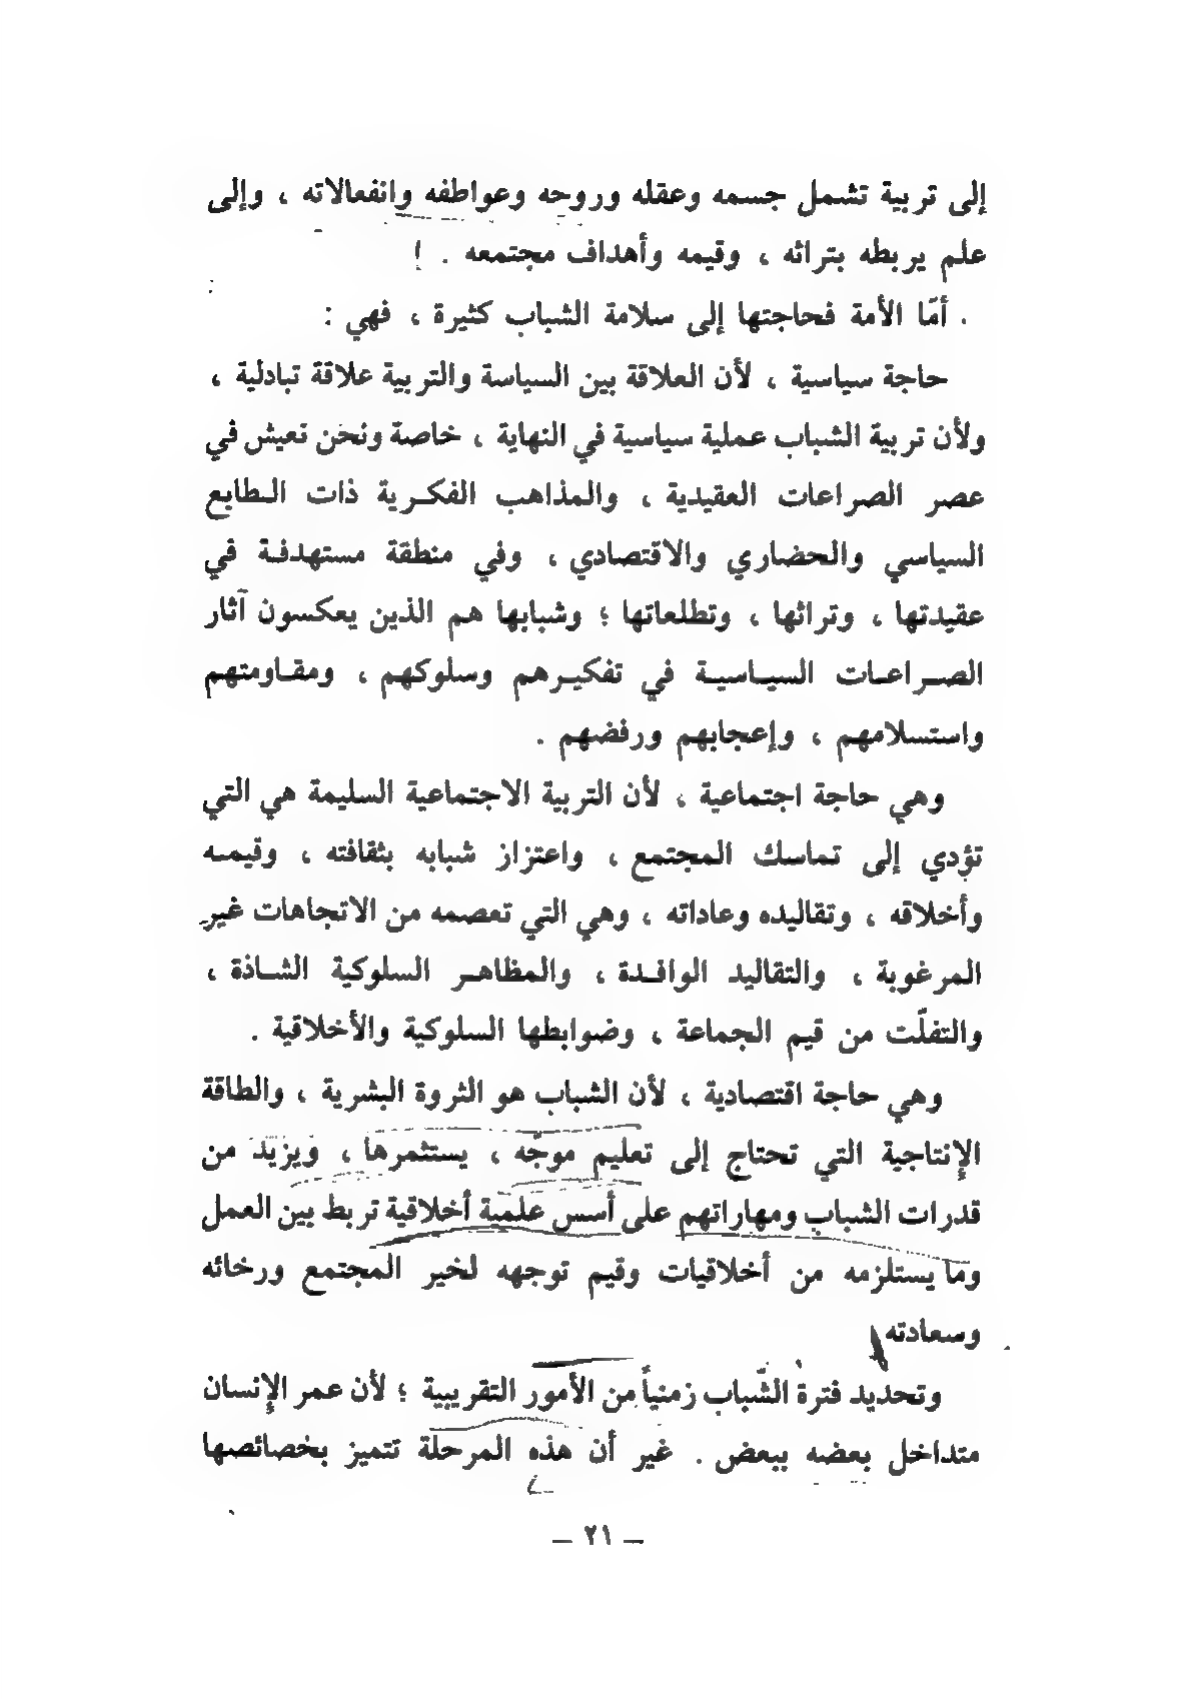 إلى تربية تشمل جسمه وعقله وروحه وعواطفه وانفعالاته ، وإلى
علم يربطه بتراثه ، وقيمه وأهداف مجتمعه . !
. أمّا الأمة فحاجتها إلى سلامة الشباب كثيرة ، فهي :
حاجة سياسية ، لأن العلاقة بين السياسة والتربية علاقة تبادلية ،
ولأن تربية الشباب عملية سياسية في النهاية ، خاصة ونحن نعيش في
عصر الصراعات العقيدية ، والمذاهب الفكرية ذات الطابع
السياسي والحضاري والاقتصادي ، وفي منطقة مستهدفة في
عقيدتها ، وتراثها ، وتطلعاتها ؛ وشبابها هم الذين يعكسون آثار
الصراعات السياسية في تفكيرهم وسلوكهم ، ومقاومتهم
واستسلامهم ، وإعجابهم ورفضهم .
وهي حاجة اجتماعية ، لأن التربية الاجتماعية السليمة هي التي
تؤدي إلى تماسك المجتمع ، واعتزاز شبابه بثقافته ، وقيمه
وأخلاقه ، وتقاليده وعاداته ، وهي التي تعصمه من الاتجاهات غير
المرغوبة ، والتقاليد الوافدة ، والمظاهر السلوكية الشاذة ،
والتفلّت من قيم الجماعة ، وضوابطها السلوكية والأخلاقية .
وهي حاجة اقتصادية ، لأن الشباب هو الثروة البشرية ، والطاقة
الإنتاجية التي تحتاج إلى تعليم موجّه ، يستثمرها ، ويزيد من
قدرات الشباب ومهاراتهم على أسس علمية أخلاقية تربط بين العمل
وما يستلزمه من أخلاقيات وقيم توجهه لخير المجتمع ورخائه
وسعادته
وتحديد فترة الشّباب زمنياً من الأمور التقريبية ؛ لأن عمر الإنسان
متداخل بعضه ببعض . غير أن هذه المرحلة تتميز بخصائصها
– ٢١ –